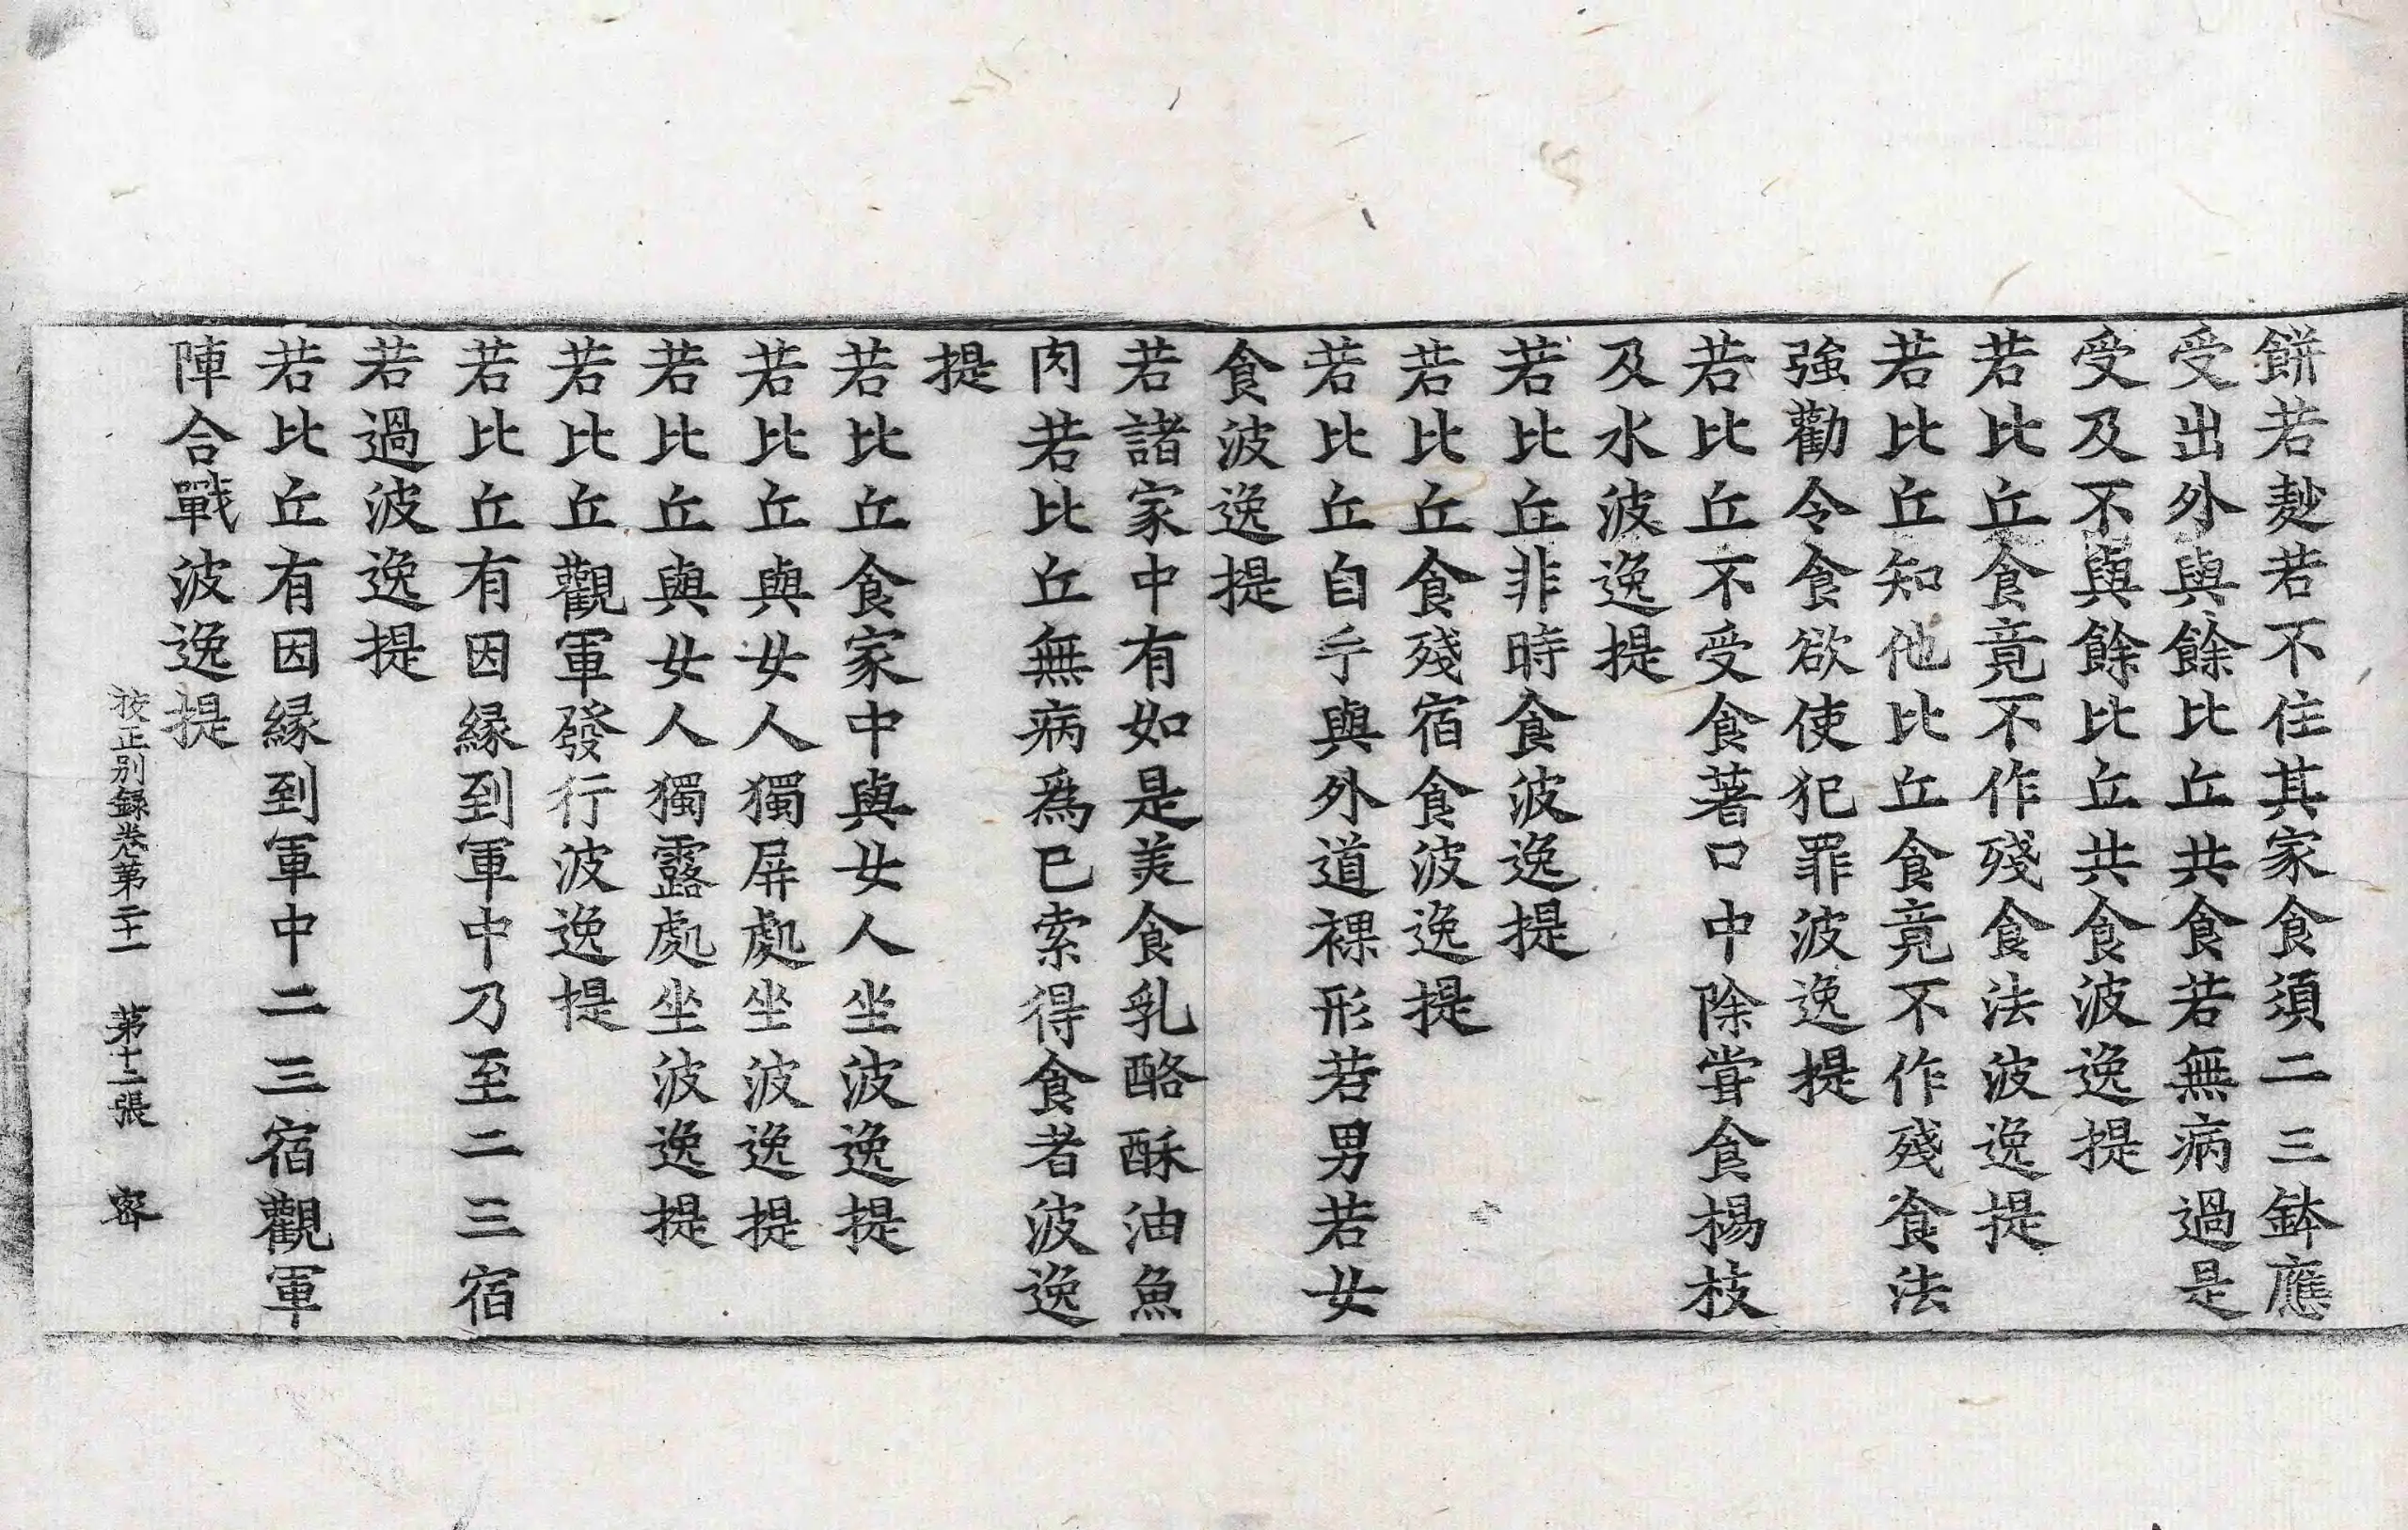 餅若麨若不住其家食須二三鉢應
受出外與餘比丘共食若無病過是
受及不與餘比丘共食波逸提
若比丘食竟不作殘食法波逸提
若比丘知他比丘食竟不作殘食法
強勸令食欲使犯罪波逸提
若比丘不受食著口中除甞食楊枝
及水波逸提
若比丘非時食波逸提
若比丘食殘宿食波逸提
若比丘自手與外道裸形若男若女
食波逸提
若諸家中有如是美食乳酪酥油魚
肉若比丘無病爲已索得食者波逸
提
若比丘食家中與女人坐波逸提
若比丘與女人獨屏處坐波逸提
若比丘與女人獨露處坐波逸提
若比丘觀軍發行波逸提
若比丘有因緣到軍中乃至二三宿
若過波逸提
若比丘有因緣到軍中二三宿觀軍
陣合戰波逸提
校正別録卷第二十一 第十二張 密